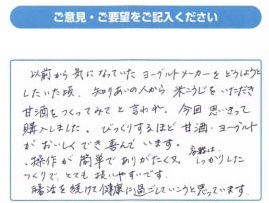 ご意見・ご要望をご記入ください
以前から気になっていたヨーグルトメーカーをどうしようと
していた頃、知りあいの人から米こうじをいただき
甘酒をつくってみてと言われ、今回思いきって
購入しました。びっくりするほど甘酒・ヨーグルト
がおいしくでき喜んでいます。
・操作が簡単でありがたく、容器はしっかりした
つくりで、とても扱いやすいです。
腸活を続けて健康に過ごしていこうと思っています。